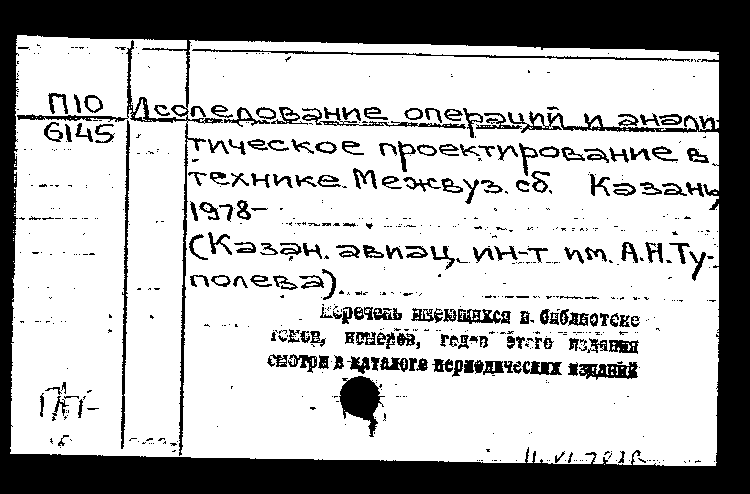 П10
6145
Исследование операций и анали
тическое проектирование в
технике. Межвуз. сб. Казань,
1978-
(Казан. авиац. ин-т им. А.Н.Ту-
полева)
Перечень имеющихся в библиотеке
томов, номеров, годов этого издания
смотри в каталоге периодических изданий